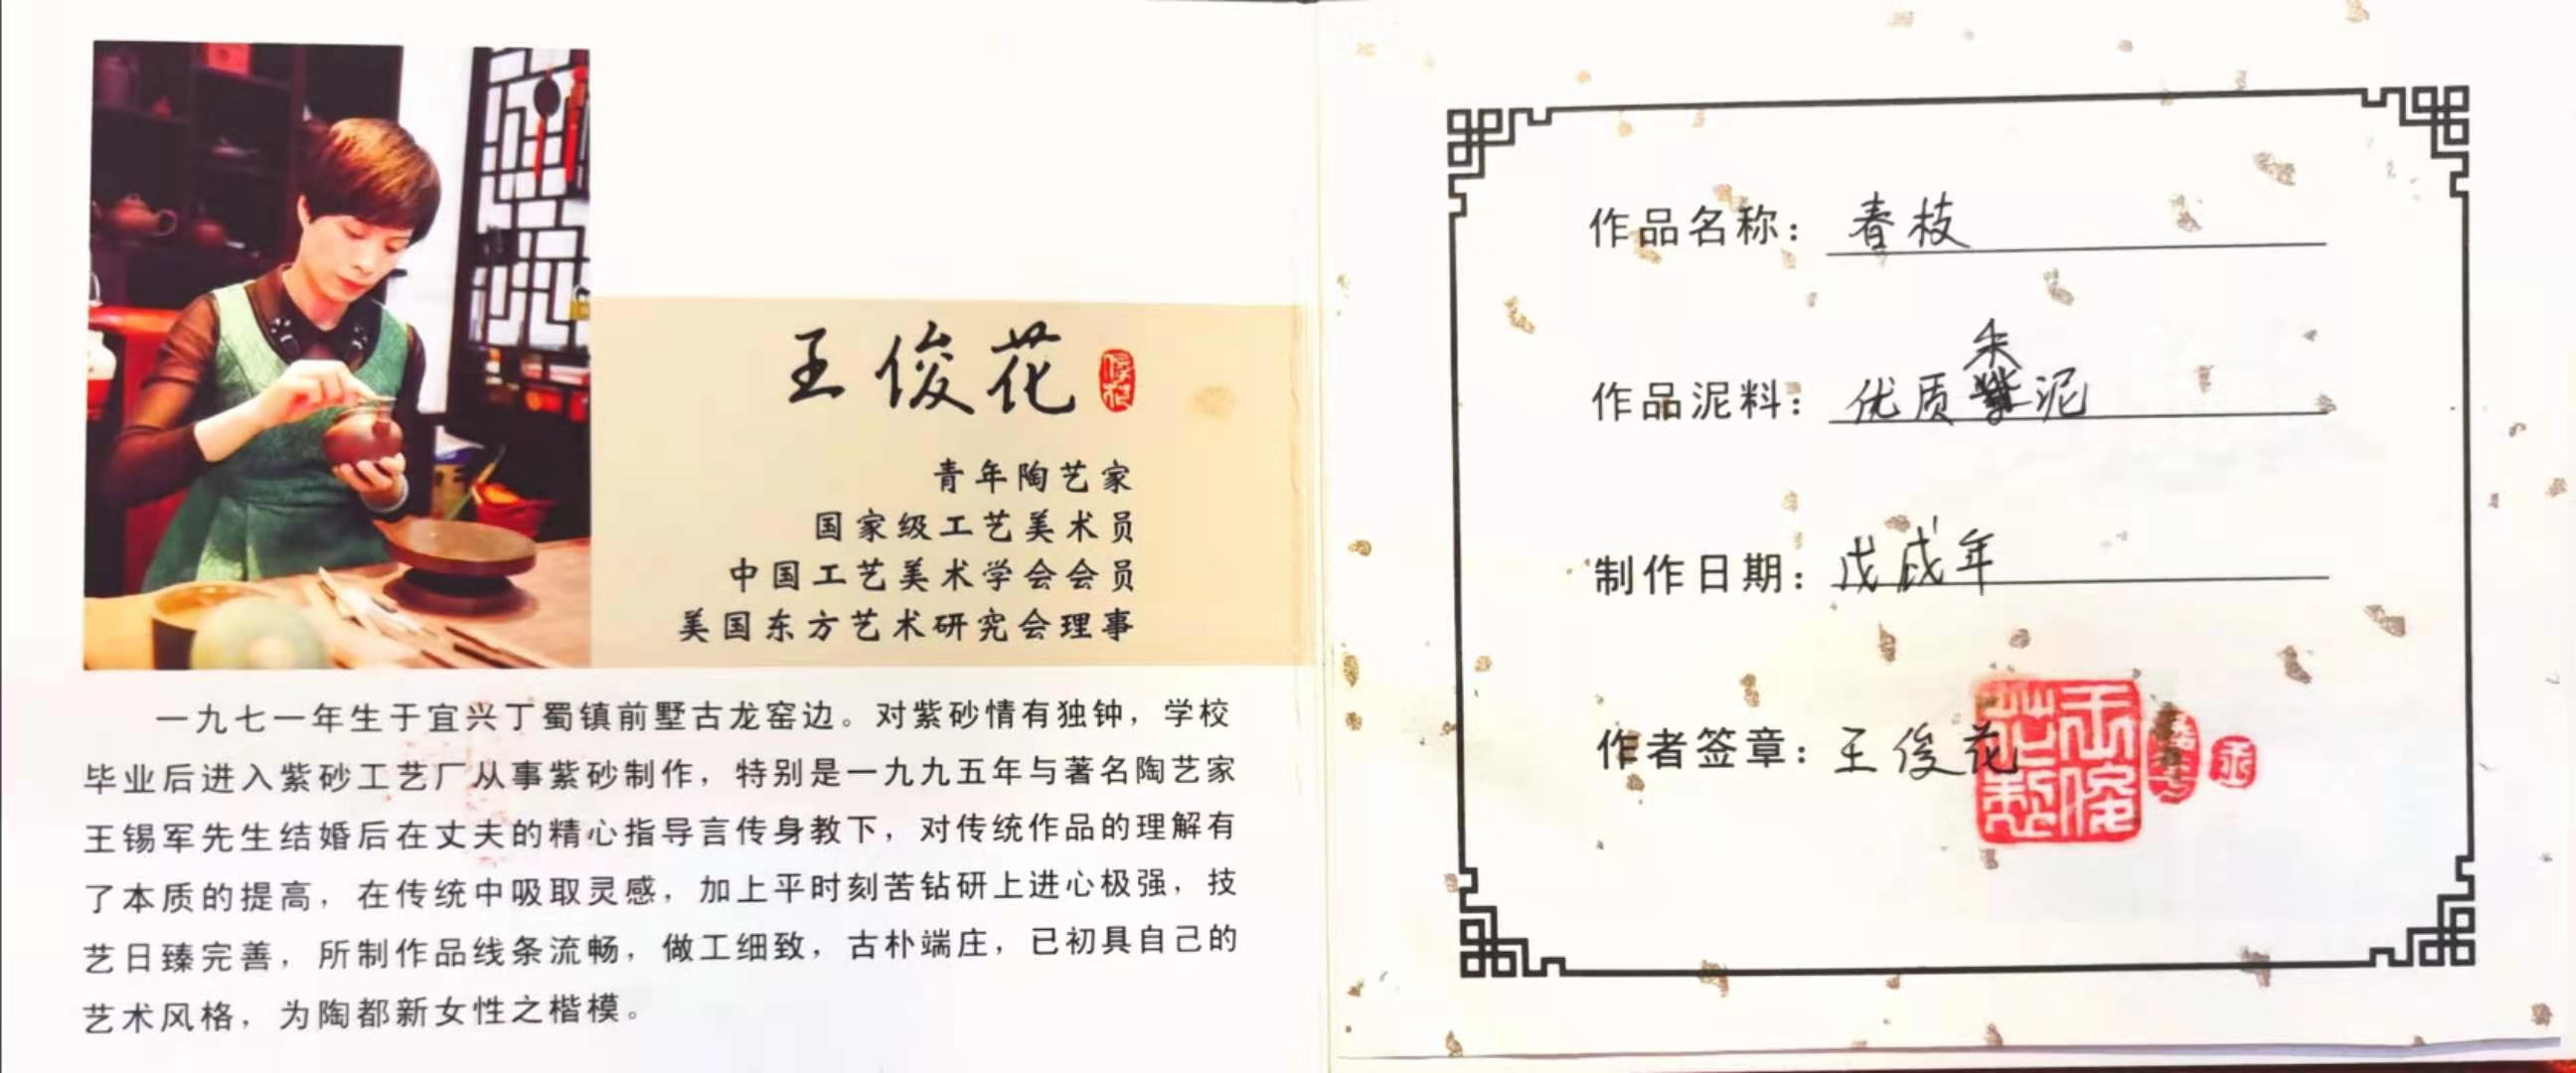 王俊花
俊花
青年陶艺家
国家级工艺美术员
中国工艺美术学会会员
美国东方艺术研究会理事
一九七一年生于宜兴丁蜀镇前墅古龙窑边。对紫砂情有独钟，学校
毕业后进入紫砂工艺厂从事紫砂制作，特别是一九九五年与著名陶艺家
王锡军先生结婚后在丈夫的精心指导言传身教下，对传统作品的理解有
了本质的提高，在传统中吸取灵感，加上平时刻苦钻研上进心极强，技
艺日臻完善，所制作品线条流畅，做工细致，古朴端庄，已初具自己的
艺术风格，为陶都新女性之楷模。
作品名称：春枝
作品泥料：优质朱泥
制作日期：戊戌年
作者签章：王俊花
王俊花制
王